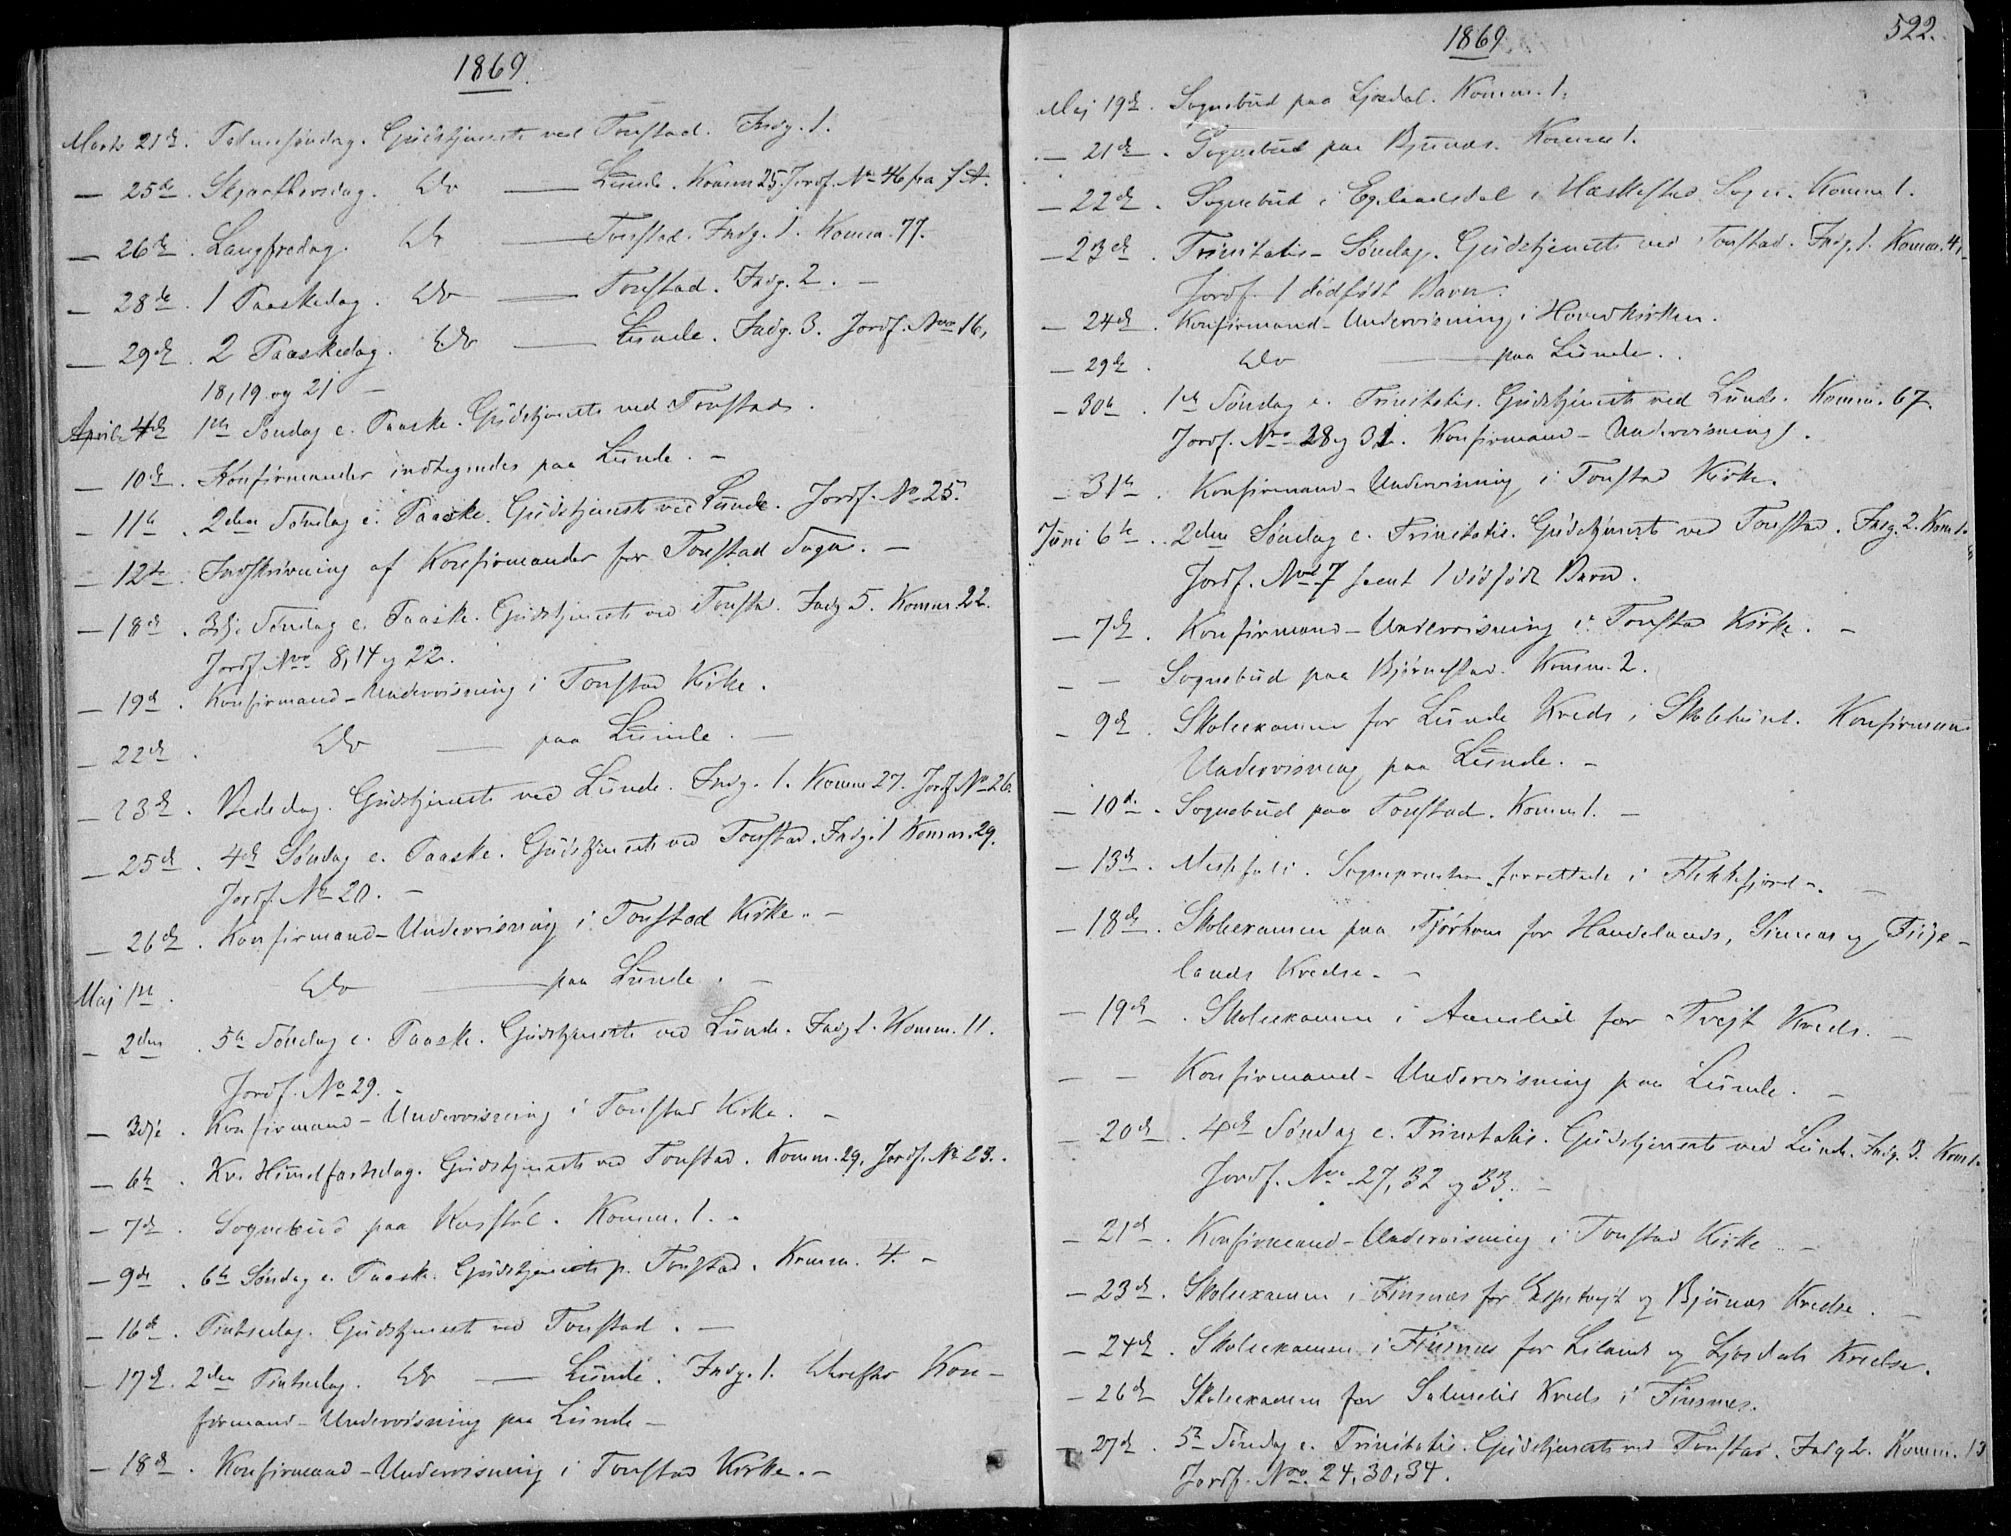 1869.
Marts 21de. Palmesøndag. Gudstjeneste ved Tonstad. Indg. 1.
— 25de. Skjærthorsdag. Do — Lunde. Komm 25. Jordf. No 46 fra f. A.
— 26de. Langfredag. Do — Tonstad. Indg. 1. Komm. 77.
— 28de. 1 Paaskedag. Do — Tonstad. Indg. 2. —
— 29de. 2 Paaskedag. Do — Lunde. Indg. 3. Jordf. Noo 16,
18, 19 og 21 —
April 4de 1ste Søndag e. Paaske. Gudstjeneste ved Tonstad.
— 10de. Konfirmander indtegnedes paa Lunde. —
— 11te. 2den Søndag e. Paaske. Gudstjeneste ved Lunde. Jordf. No 25.
— 12te. Indskrivning af Konfirmander for Tonstad Sogn. —
— 18de. 3dje Søndag e. Paaske. Gudstjeneste ved Tonstad. Indg 5. Komm. 22.
Jordf. Noo 8, 14 og 22.
— 19de. Konfirmand-Undervisning i Tonstad Kirke.
— 22de. Do — paa Lunde. —
— 23de. Bededag. Gudstjeneste ved Lunde. Indg. 1. Komm 27. Jordf. No 26.
— 25de. 4de Søndag e. Paaske. Gudstjeneste ved Tonstad. Indg. 1 Komm. 29.
Jordf. No 20. —
— 26de. Konfirmand-Undervisning i Tonstad Kirke. —
Maj 1ste. Do — paa Lunde. —
— 2den. 5te Søndag e. Paaske. Gudstjeneste ved Lunde. Indg 1. Komm. 11.
Jordf. No 29. —
— 3dje. Konfirmand-Undervisning i Tonstad Kirke. —
— 6te. Kr. Himelfartsdag. Gudstjeneste ved Tonstad. Komm. 29. Jordf. No 23.
— 7de. Sognebud paa Kvsstøl. Komm. 1. —
— 9de. 6te Søndag e. Paaske. Gudstjeneste p. Tonstad. Komm. 4. —
— 16de. Pintsedag. Gudstjeneste ved Tonstad. —
— 17de. 2den Pintsedag. Do — Lunde. Indg. 1. Derefter Kon-
firmand-Undervisning paa Lunde —
— 18de. Konfirmand-Undervisning i Tonstad Kirke. —
1869
522.
Maj 19de. Sognebud paa Ljosdal. Komm. 1.
— 21de. Sognebud paa Bjunæs. Komm 1.
— 22de. Sognebud i Eglandsdal i Hæskestad Sogn. Komm 1.
— 23de. Trinitatis-Søndag. Gudstjeneste ved Tonstad. Indg. 1. Komm. 4.
Jordf. 1 dødfødt Barn.
— 24de. Konfirmand-Undervisning i Hovedkirken.
— 29de. Do — paa Lunde.
— 30te. 1ste Søndag e. Trinitatis. Gudstjeneste ved Lunde. Komm. 67.
Jordf. Noo 28 og 31. Konfirmand-Undervisning.
— 31te. Konfirmand-Undervisning i Tonstad Kirke.
Juni 6te. 2den Søndag e. Trinitatis. Gudstjeneste ved Tonstad. Indg. 2. Komm.
Jordf. No 7 samt 1 dødfødt Barn.
— 7de. Konfirmand-Undervisning i Tonstad Kirke. —
— — Sognebud paa Bjørnestad. Komm. 2.
— 9de. Skoleexamen for Lunde Kreds i Skolehuset. Konfirmand-
Undervisning paa Lunde. —
— 10de. Sognebud paa Tonstad. Komm 1. —
— 13de. Messefald. Sognepresten forrettede i Flekkefjord. —
— 18de. Skoleexamen paa Tjørhom for Haudelands, Sinnæs og Fidje-
lands Kredse. —
— 19de. Skoleexamen i Aamslid for Tvejt Kreds. —
— — Konfirmand-Undervisning paa Lunde. —
— 20de. 4de Søndag e. Trinitatis. Gudstjeneste ved Lunde. Indg. 3. Komm.
Jordf. Noo 27, 32 og 33. —
— 21de. Konfirmand-Undervisning i Tonstad Kirke. —
— 23de. Skoleexamen i Finsnæs for Espetvejt og Bjunæs Kredse. —
— 24de. Skoleexamen i Finsnæs for Liland og Ljosdals Kredse.
— 26de. Skoleexamen for Salmelid Kreds i Finsnæs.
— 27de. 5te Søndag e. Trinitatis. Gudstjeneste ved Tonstad. Indg 2. Komm. 13
Jordf. Noo 24, 30, 34.